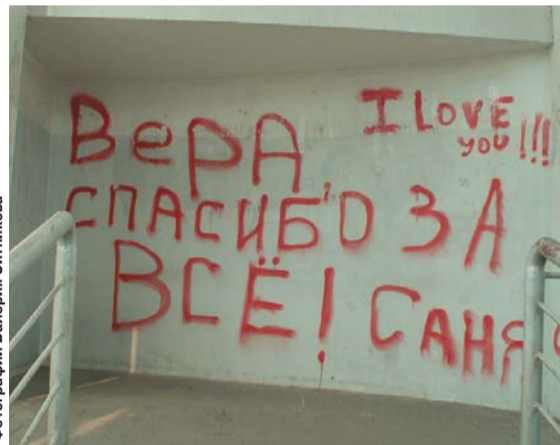 ВерА,
I LOVE
you!!!
СПАСИБО ЗА
ВСЁ! САНЯ